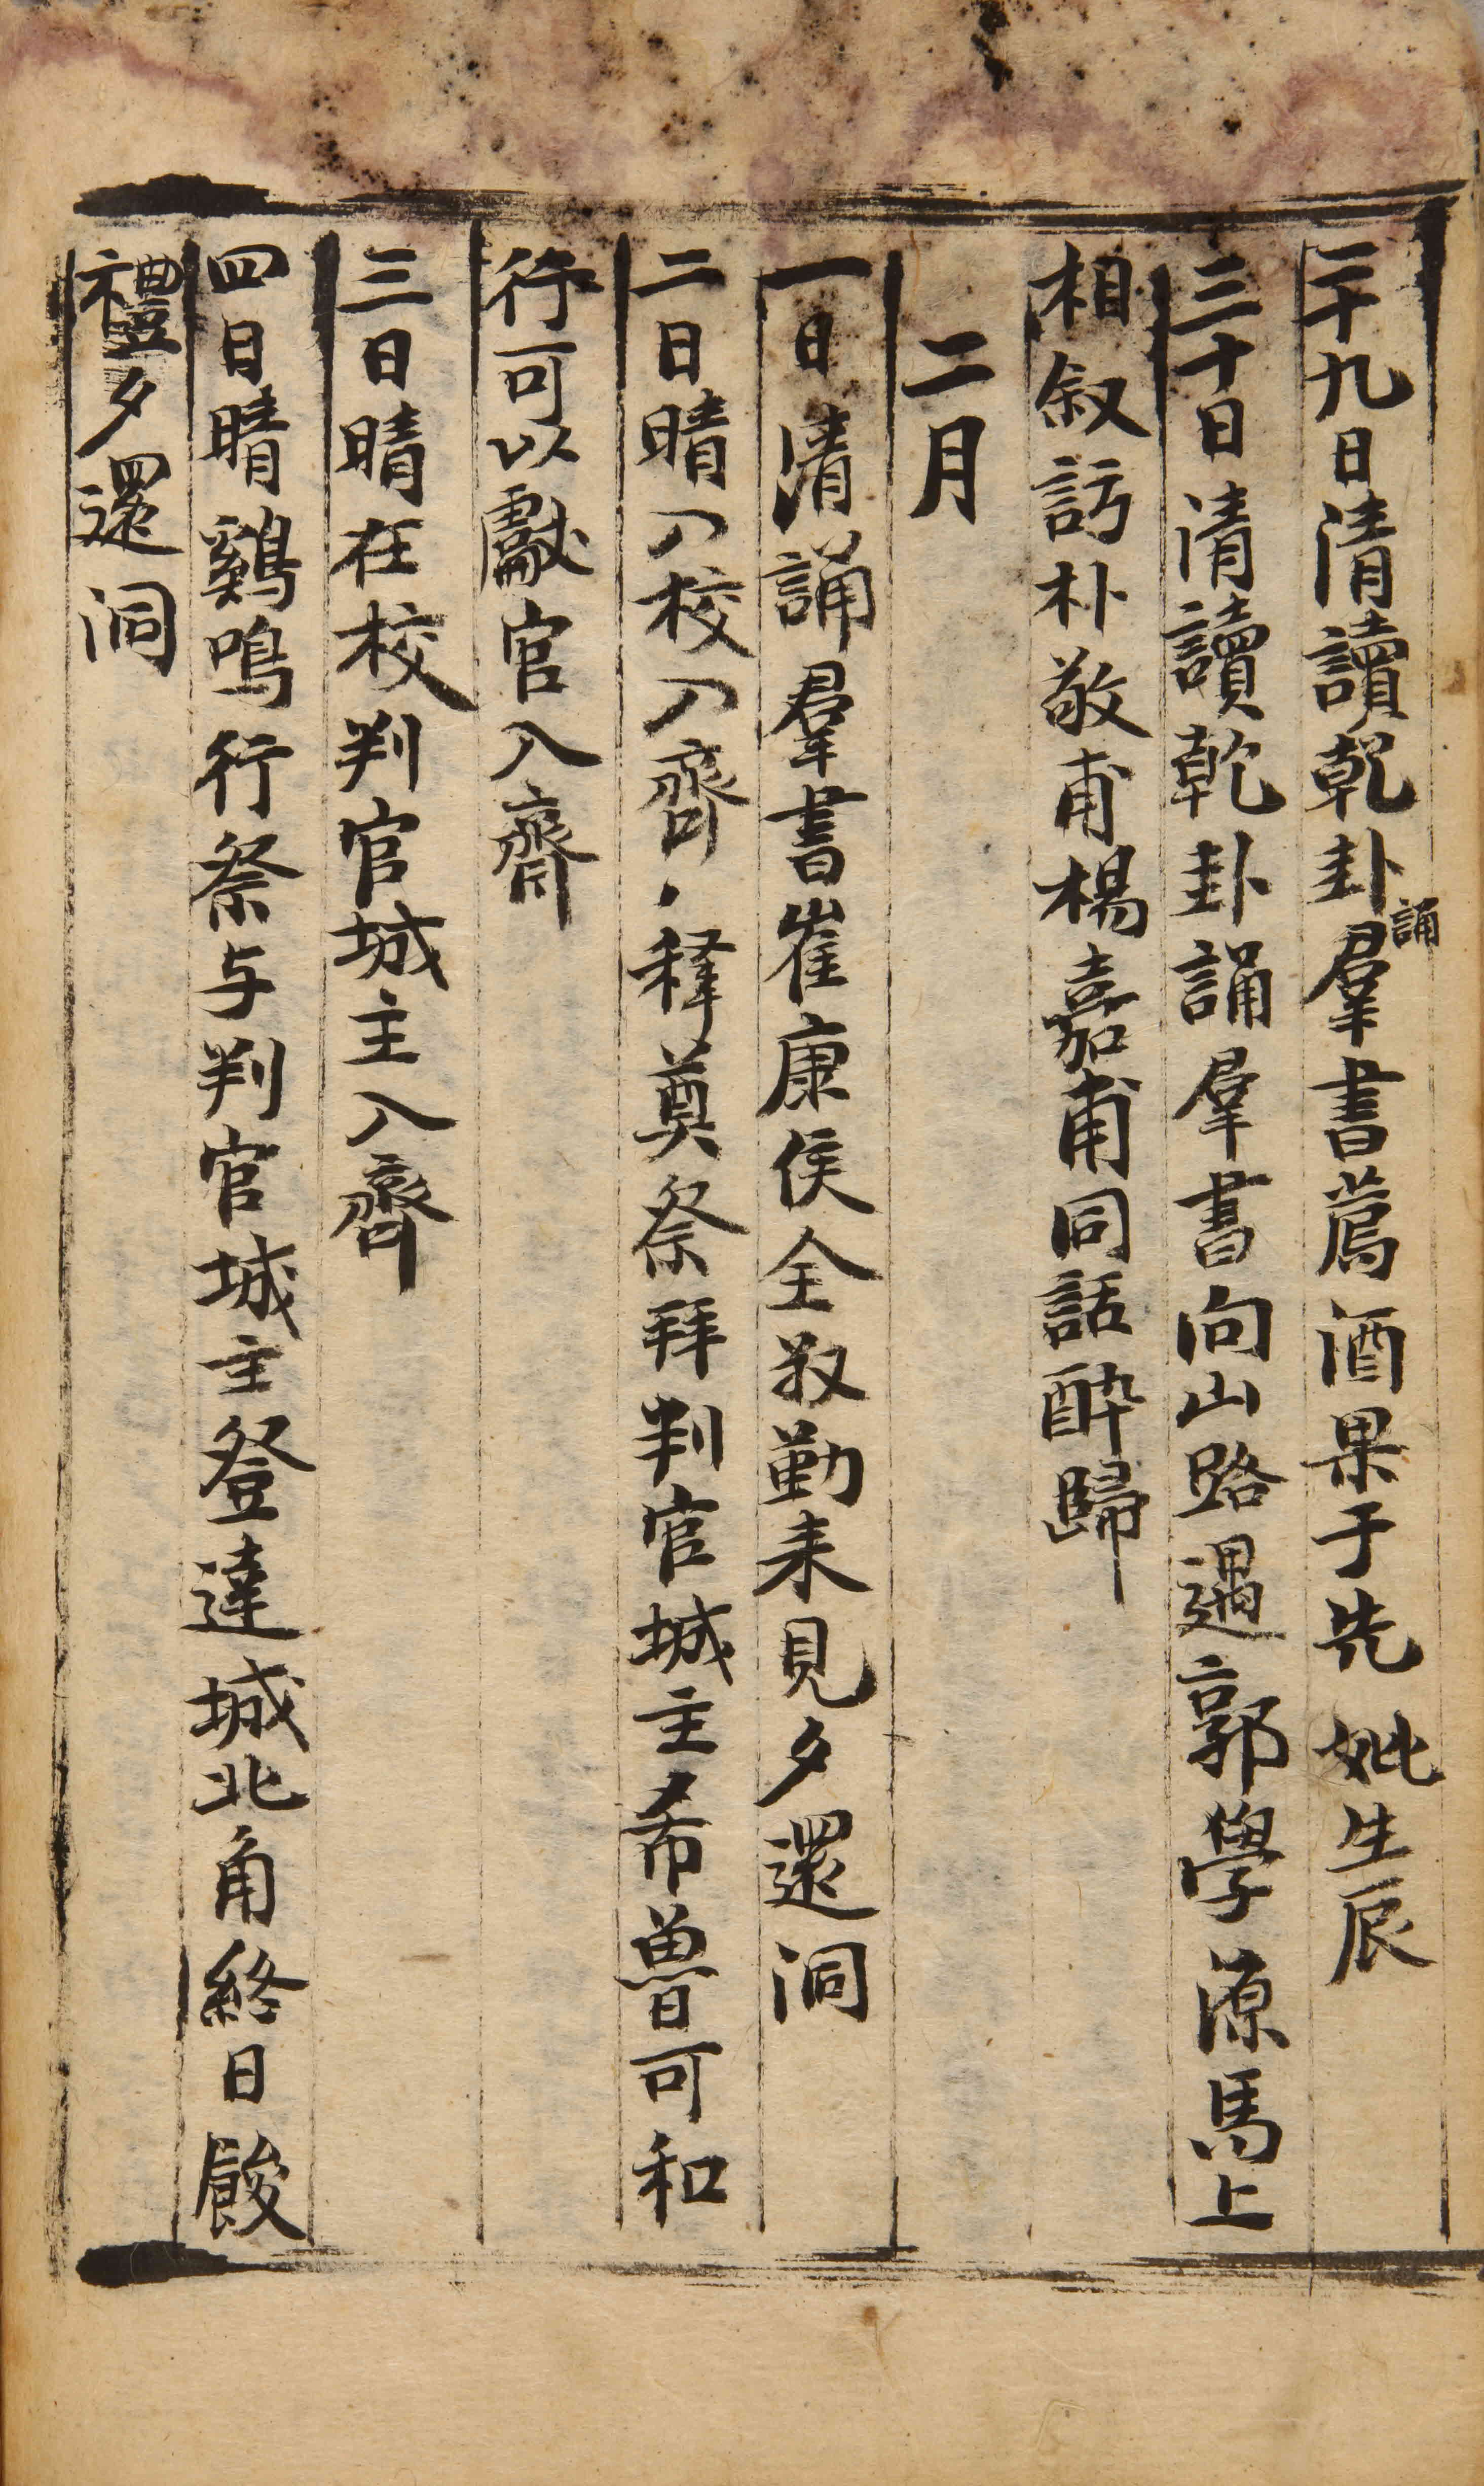 二十九日清讀乾卦誦羣書薦酒果于先妣生辰
三十日清讀乾卦誦羣書向山路遇郭學源馬上
相叙訪朴敬甫楊嘉甫同話酔歸
二月
一日清誦羣書崔康侯全叔勤来見夕還洞
二日晴入校入齋釋奠祭拜判官城主希魯可和
行可以獻官入齋
三日晴在校判官城主入齋
四日晴鷄鳴行祭与判官城主登達城北角終日餕
禮夕還洞